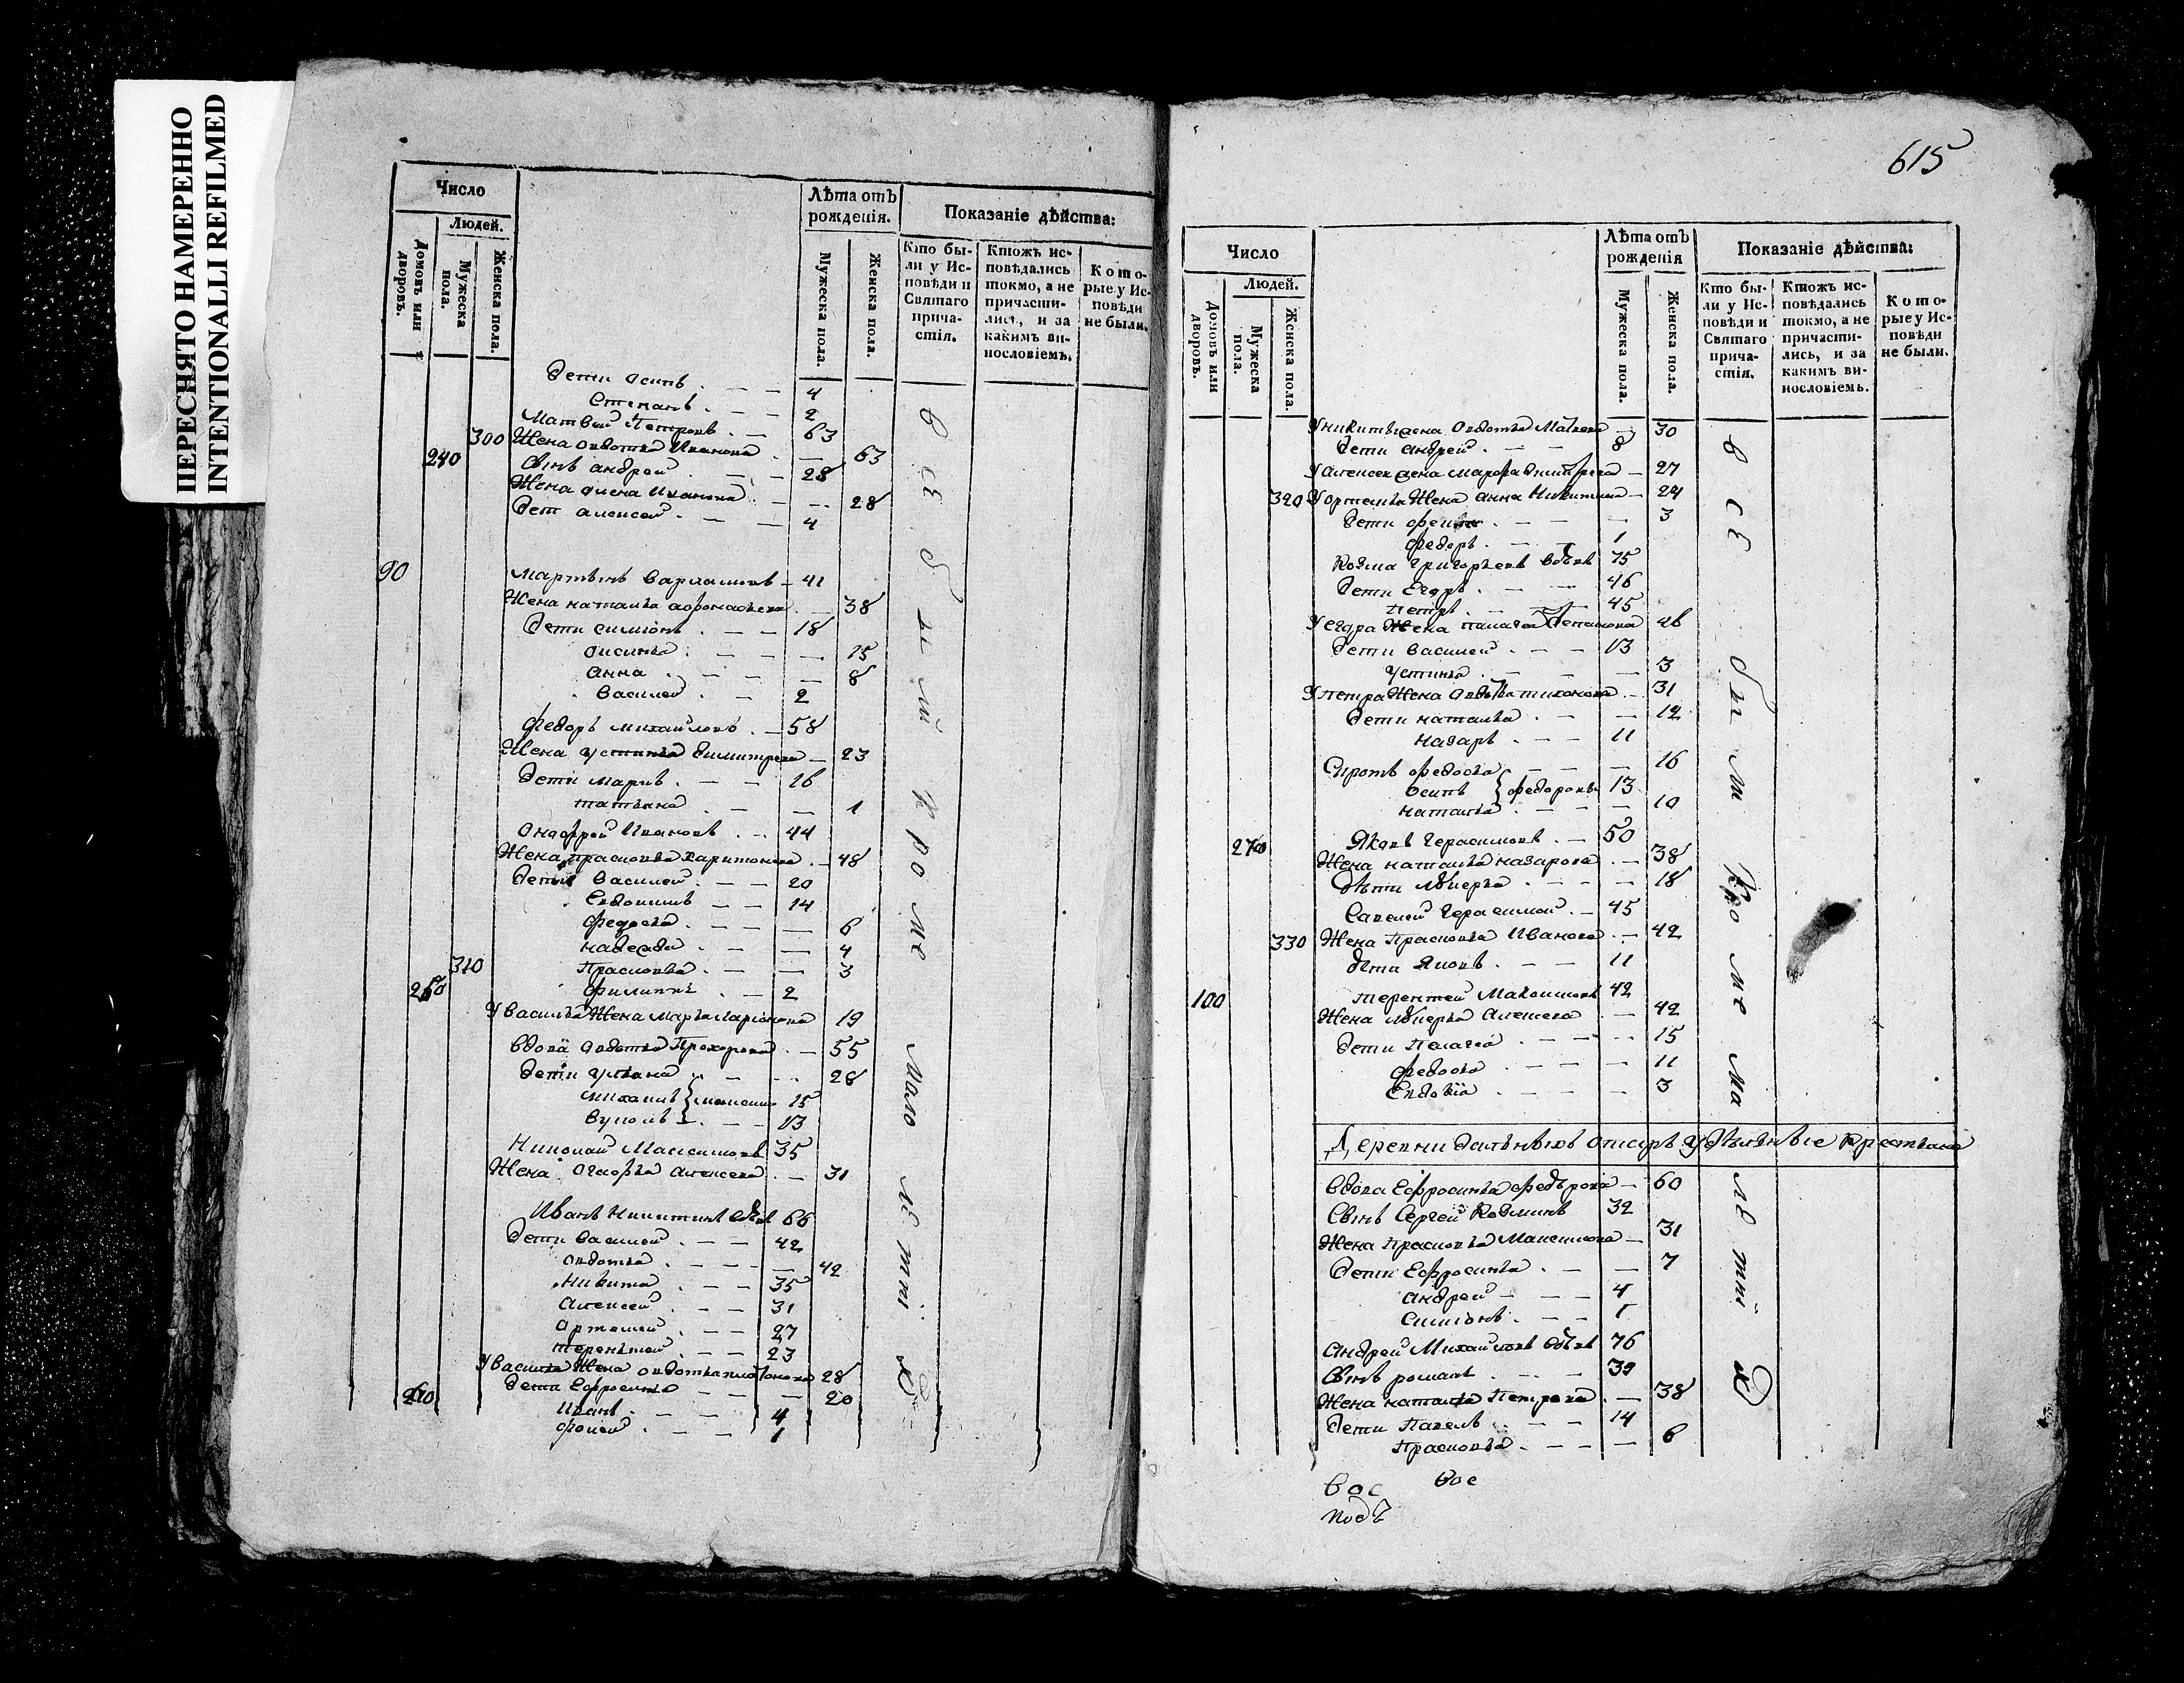 ПЕРЕСНЯТО НАМЕРЕННО
INTENTIONALLI REFILMED
Число
Людей.
Домовъ или дворовъ.
Мужеска пола.
Женска пола.
Лѣта отъ рожденія.
Мужеска пола.
Женска пола.
Показаніе дѣйства:
Кто были у Исповѣди и Святаго причастія.
Ктожъ исповѣдались токмо, а не причастились, и за какимъ винословіемъ.
Которые у Исповѣди не были.
дети осипъ 4
Степанъ 2
Матвей Петровъ 63
300 Жена овдотья Иванова 63
240 Сынъ андрей 28
Жена Иванова 28
дет алексей 4
90 Мартынъ Варламовъ 41
Жена наталья афонасьева 38
дети симіонъ 18
15
анна 8
Василей 2
федоръ михайловъ 58
Жена устинья димитрева 23
дети 16
татьяна 1
Ивановъ 44
Жена прасковья харитонова 48
дети Василей 20
Евдокимъ 14
федосья 6
надежда 4
310 Прасковья 3
250 филиппъ 2
У Василья Жена Марья Ларіонова 19
вдова овдотья Прохорова 55
дети ульяна 28
михаилъ 15
13
Николай Максимовъ 35
Жена Алексева 31
Иванъ Никитинъ вдовъ 66
дети Василей 42
овдотья 42
Никита 35
алексей 31
артемей 27
терентей 23
У Василья Жена овдотья 28
дети Ефросинья 20
260 Иванъ 4
фокей 1
Всѣ были кроме малолѣтнихъ
615
Число
Людей.
Домовъ или дворовъ.
Мужеска пола.
Женска пола.
Лѣта отъ рожденія
Мужеска пола.
Женска пола.
Показаніе дѣйства:
Кто были у Исповѣди и Святаго причастія.
Ктожъ исповѣдались токмо, а не причастились, и за какимъ винословіемъ.
Которые у Исповѣди не были.
У никиты жена Овдотья Матвева 30
дети андрей 8
У алексея жена марфа дмитрева 27
320 У артемья Жена анна Никитина 24
дети 3
федоръ 1
Козма Григорьевъ вдовъ 75
дети Егоръ 46
петръ 45
У егора Жена палагея Степанова 46
дети василей 13
устинья 3
У петра Жена овдотья тихонова 31
дети наталья 12
назаръ 11
Сиротъ федосья 16
осипъ } федоровы 13
наталья 10
270 Яковъ Герасимовъ 50
Жена наталья назарова 38
дѣти лукерья 18
Савелей Герасимов 45
330 Жена Прасковья Иванова 42
дѣти Яковъ 11
100 терентей Максимовъ 42
Жена лукерья Алексева 42
дети Палагея 15
федосья 11
Евдокія 3
Деревни дальныхъ удѣльные крестьяне
вдова Ефросинья федорова 60
Сынъ Сергей Козминъ 32
Жена прасковья Максимова 31
дети Ефросинья 7
андрей 4
Симіонъ 1
андрей Михайловъ вдовъ 76
Сынъ романъ 39
Жена наталья Петрова 38
дети Павелъ 14
Прасковья 6
Всѣ были Кроме малѣтнихъ
вос вос